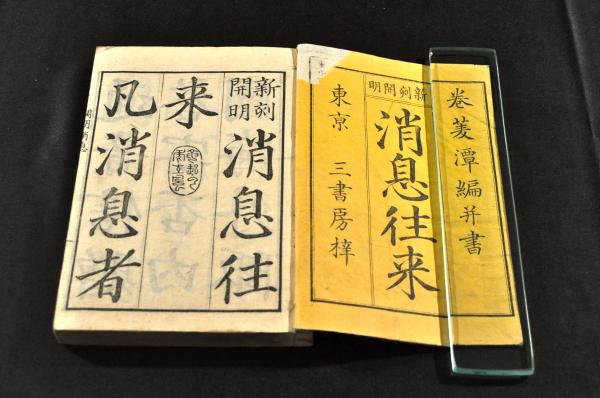 巻菱潭編并書
新刻開明
消息往来
東京 三書房梓
新刻
開明
消息往
来
凡消息者
開明消息